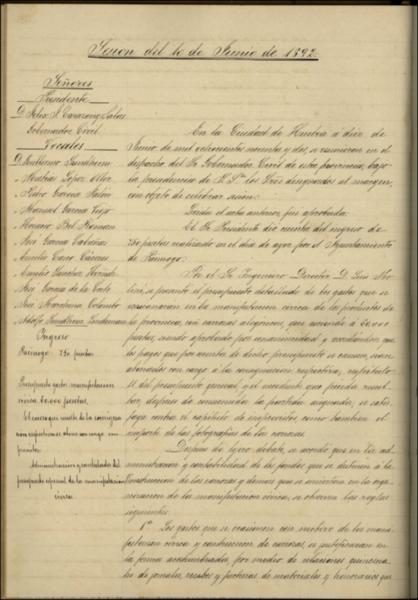 Sesion del 10 de Junio de 1892.
Señores
Presidente
Gobernador Civil
Vocales
D. Guillermo Sundheim
Matias Lopez
Pedro Garcia
Manuel Garcia
Horacio Bel Roman
José Garcia Cabañas
Aurelio Cano Cáceres
José Garcia de la
José Marchena Colombo
Adolfo Sundheim Lindemann
Ingreso
Paimogo 750 pesetas
Presupuesto gastos manifestacion
civica 60.000 pesetas.
Administracion y contabilidad del
presupuesto especial de la manifestacion
civica
En la Ciudad de Huelva a diez de
Junio de mil ochocientos noventa y dos, se reunieron en el
despacho del Sr. Gobernador Civil de esta provincia, bajo
la presidencia de S. Sa. los Sres designados al margen,
con objeto de celebrar sesion.
Leida el acta anterior, fué aprobada.
El Sr. Presidente dió cuenta del ingreso de
750 pesetas realizado en el dia de ayer por el Ayuntamiento
de Paimogo.
Por el Sr. Ingeniero Director D. Luis Mo-
lini, se presentó el presupuesto detallado de los gastos que se
ocasionaran en la manifestacion civica de los productos de
la provincia, con carrozas alegoricas, que asciende a 60.000
pesetas, siendo aprobado por unanimidad y acordandose que
los pagos que por cuenta de dicho presupuesto se causen, sean
abonados con cargo a la consignacion respectiva, capitulo
11 del presupuesto general, y el excedente que pueda resul-
tar, despues de consumida la partida asignada, se satis-
faga contra el capitulo de imprevistos, como tambien el
importe de las fotografias de las carrozas.
Despues de ligero debate, se acordó que en la ad-
ministracion y contabilidad de los fondos que se destinen á la
construccion de las carrozas y demas que se invierta en la orga-
nizacion de la manifestacion civica, se observen las reglas
siguientes:
1a. Los gastos que se ocasionen con motivo de la mani-
festacion civica y construccion de carrozas, se justificaran en
la forma acostumbrada, por medio de relaciones quincena-
les de jornales, recibos y facturas de materiales y honorarios que